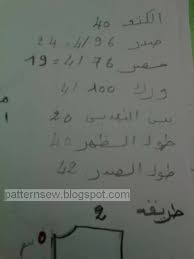 الكتف 40
صدر 96/4 = 24
خصر 76/4 = 19
ورك 100/4
بين النهدين 20
طول الظهر 40
طول الصدر 42
patternsew.blogspot.com
طريقة
2